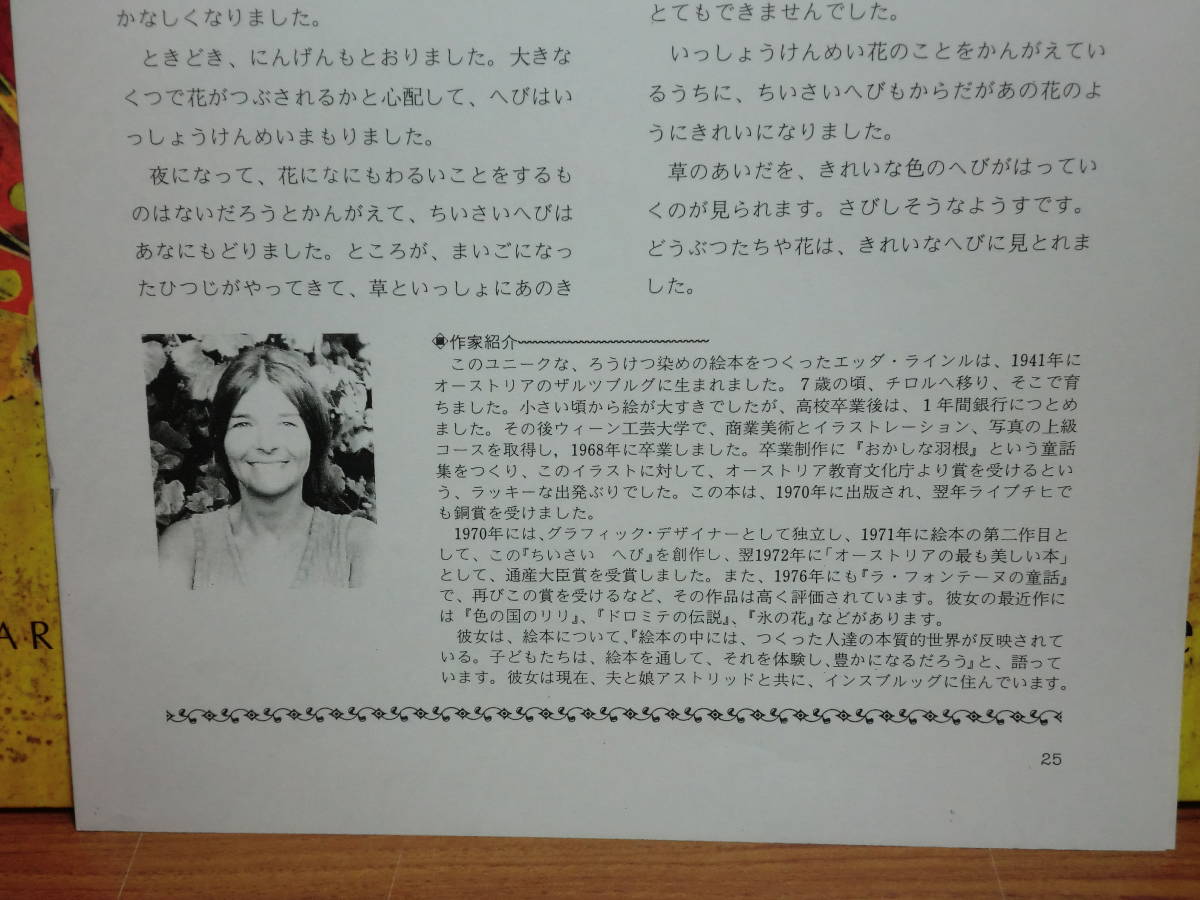 かなしくなりました。
　ときどき、にんげんもとおりました。大きな
くつで花がつぶされるかと心配して、へびはい
っしょうけんめいまもりました。
　夜になって、花になにもわるいことをするも
のはないだろうとかんがえて、ちいさいへびは
あなにもどりました。ところが、まいごになっ
たひつじがやってきて、草といっしょにあのき
とてもできませんでした。
　いっしょうけんめい花のことをかんがえてい
るうちに、ちいさいへびもからだがあの花のよ
うにきれいになりました。
　草のあいだを、きれいな色のへびがはってい
くのが見られます。さびしそうなようすです。
どうぶつたちや花は、きれいなへびに見とれま
した。
作家紹介
　このユニークな、ろうけつ染めの絵本をつくったエッダ・ラインルは、1941年に
オーストリアのザルツブルグに生まれました。7歳の頃、チロルへ移り、そこで育
ちました。小さい頃から絵が大すきでしたが、高校卒業後は、1年間銀行につとめ
ました。その後ウィーン工芸大学で、商業美術とイラストレーション、写真の上級
コースを取得し，1968年に卒業しました。卒業制作に『おかしな羽根』という童話
集をつくり、このイラストに対して、オーストリア教育文化庁より賞を受けるとい
う、ラッキーな出発ぶりでした。この本は、1970年に出版され、翌年ライプチヒで
も銅賞を受けました。
　1970年には、グラフィック・デザイナーとして独立し、1971年に絵本の第二作目と
して、この『ちいさい　へび』を創作し、翌1972年に「オーストリアの最も美しい本」
として、通産大臣賞を受賞しました。また、1976年にも『ラ・フォンテーヌの童話』
で、再びこの賞を受けるなど、その作品は高く評価されています。彼女の最近作に
は『色の国のリリ』、『ドロミテの伝説』、『氷の花』などがあります。
　彼女は、絵本について、『絵本の中には、つくった人達の本質的世界が反映されて
いる。子どもたちは、絵本を通して、それを体験し、豊かになるだろう』と、語って
います。彼女は現在、夫と娘アストリッドと共に、インスブルッグに住んでいます。
25
AR
e